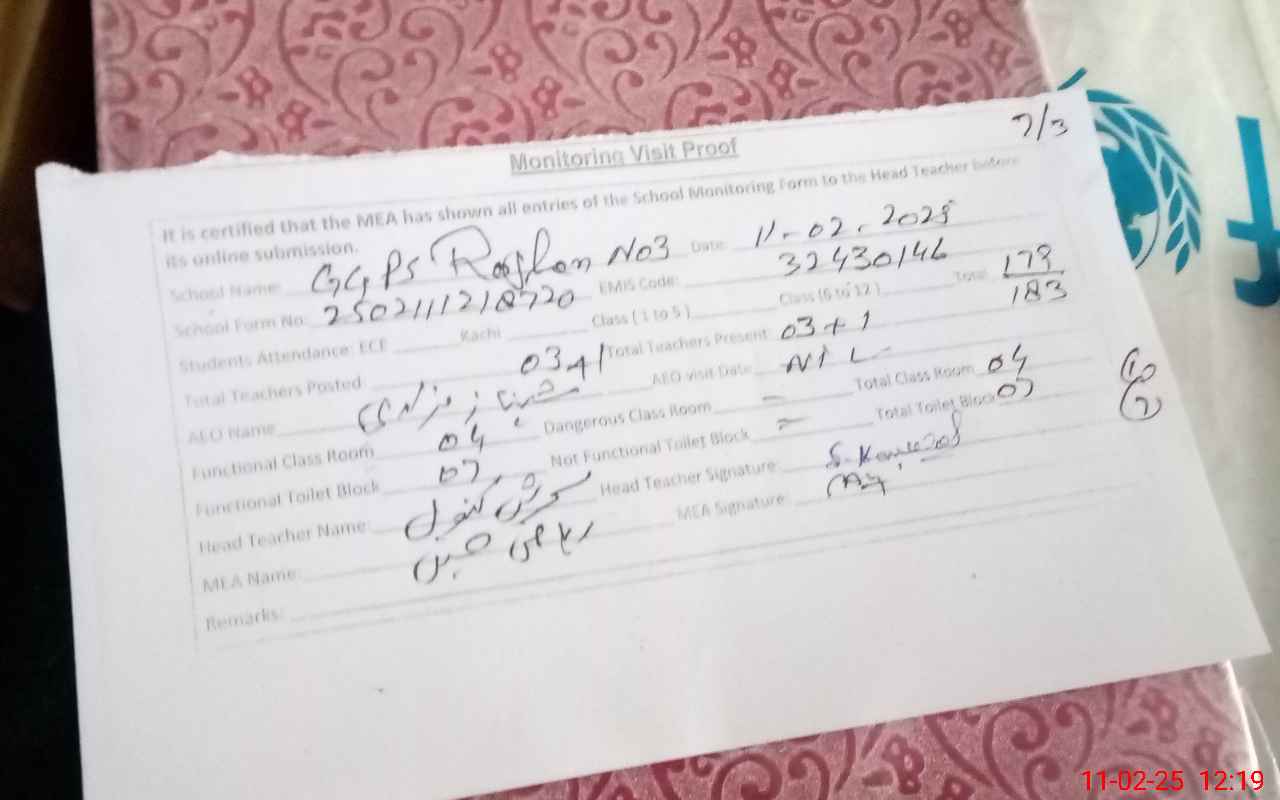 7/3
Monitoring Visit Proof
It is certified that the MEA has shown all entries of the School Monitoring Form to the Head Teacher before
its online submission.
School Name: GGPS No3 Date: 11-02-2025
School Form No: 2502111218720 EMIS Code: 32430146
Students Attendance: ECE Kachi Class (1 to 5) Class (6 to 12) Total 173
183
Total Teachers Posted 03+1 Total Teachers Present 03+1
AEO Name AEO visit Date NIL
Functional Class Room 04 Dangerous Class Room - Total Class Room 04
Functional Toilet Block 02 Not Functional Toilet Block - Total Toilet Block 02
Head Teacher Name: کنول Head Teacher Signature:
MEA Name: MEA Signature:
Remarks:
11-02-25 12:19